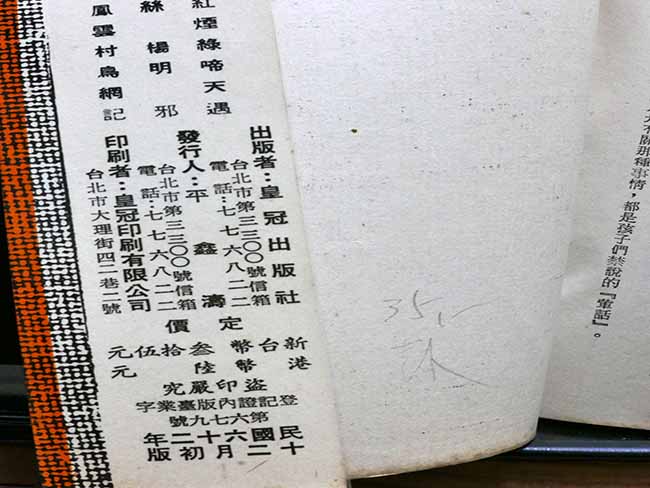 有關那種事情，都是孩子們禁說的『葷話』。
紅煙綠啼天遇
絲楊明邪
鳳雲村烏網記
出版者：皇冠出版社
台北市第三三〇〇號信箱
電話：七七六八二二
發行人：平鑫濤
台北市第三三〇〇號信箱
電話：七七六八二二
印刷者：皇冠印刷有限公司
台北市大理街四二巷二號
定價
新台幣叁拾伍元
港幣陸元
盜印嚴究
登記證內版臺業字
第六七九號
民國六十二年
十二月初版
35.-